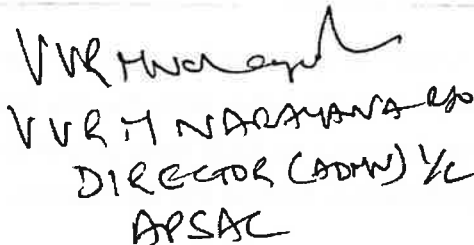 VVRM
VVR M NARAYANA RAO
DIRECTOR (ADMN) I/C
APSAC